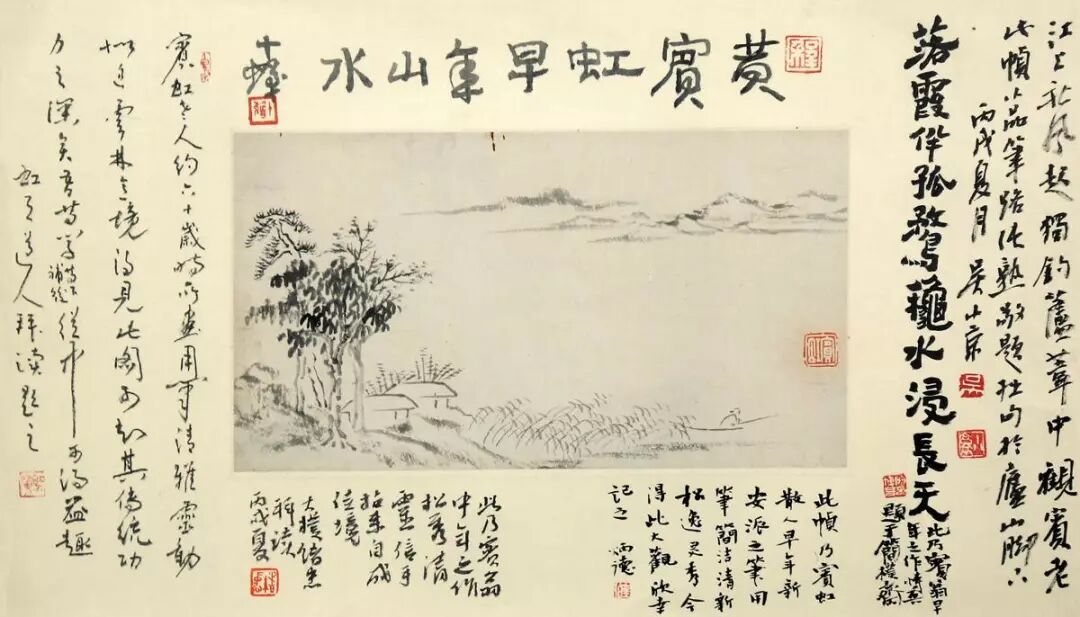 黄賓虹早年山水
江上秋风起獨釣蘆葦中觀賓老
此幀品筆路依熟敬題拙句於廬山脚下
丙戌夏月 吴小
落霞伴孤鶩龝水浸長天
此乃賓翁早
年之作
題
此幀乃賓虹
散人早年新
安派之筆用
筆簡洁清新
松逸灵秀今
得此大觀欣幸
記之 炳德
此乃賓翁
中年之作
松秀清
靈信手
拈来自成
佳境
大樸
拜读
丙戌夏
賓虹老人约六十歲時所畫用筆清雅靈動
似近雲林之境得見此圖可知其傳統功
力之深矣 補筆 可得益趣
虹 道人拜读題之